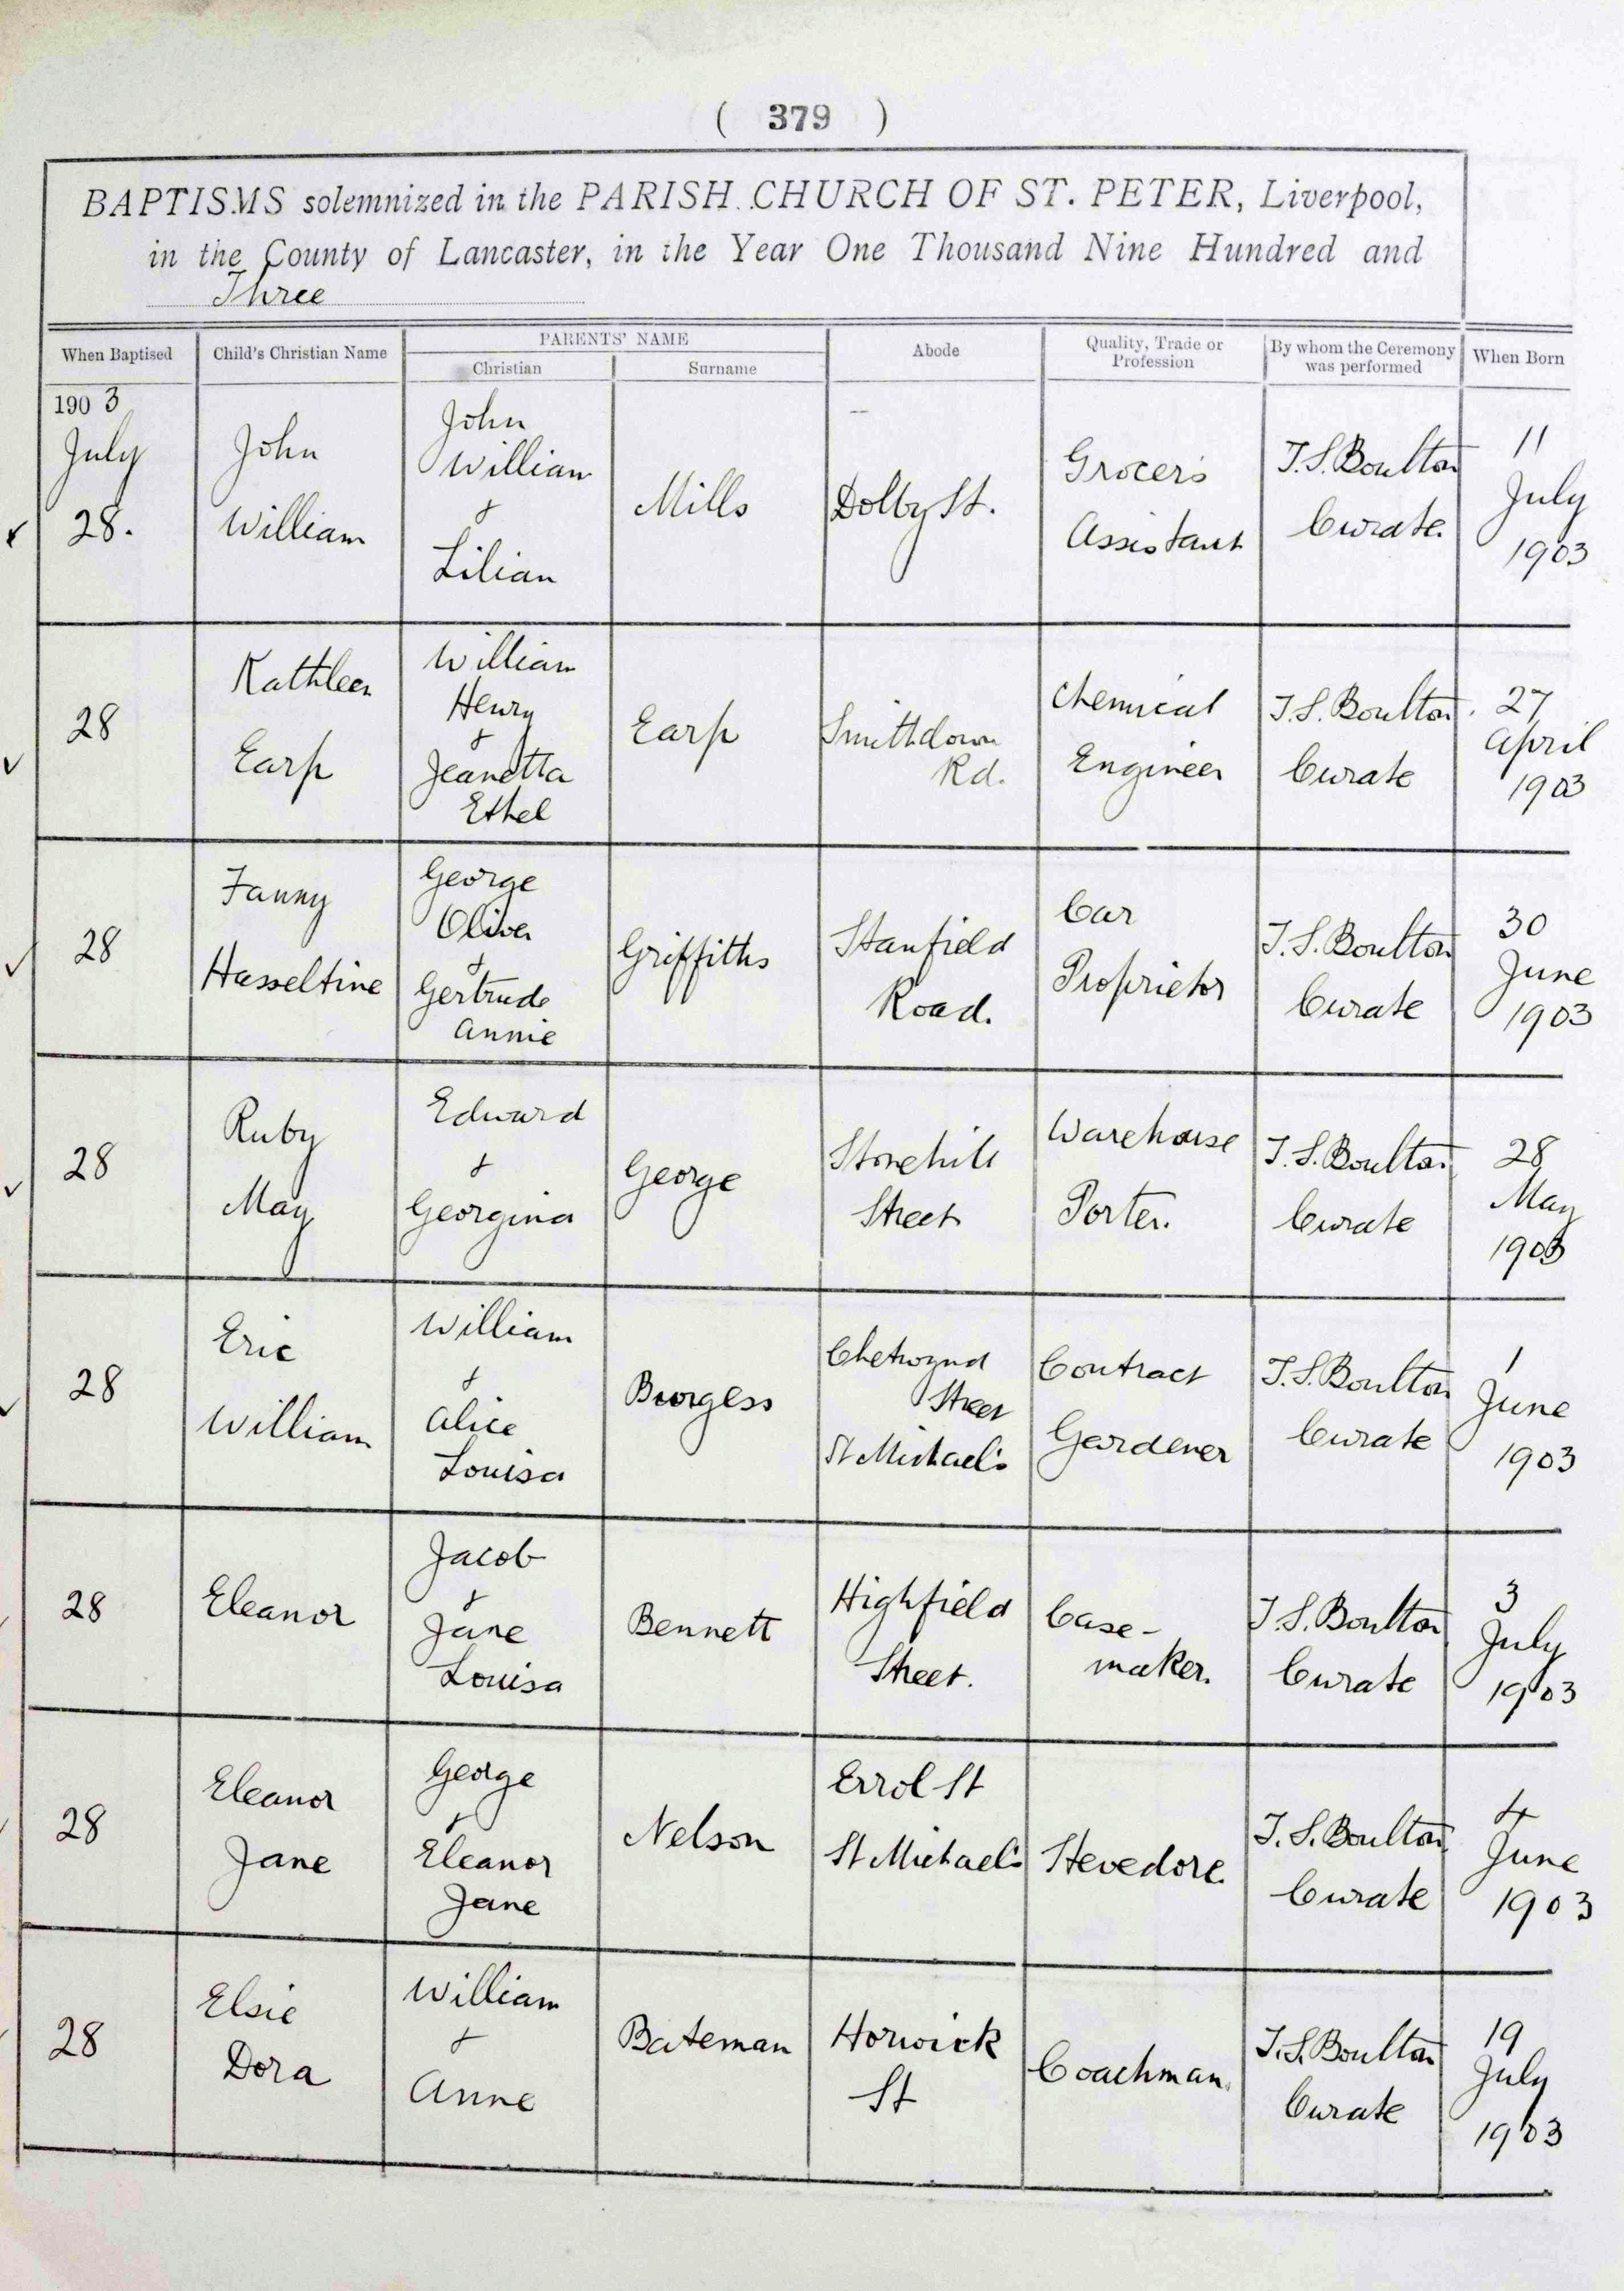 ( 379 )
BAPTISMS solemnized in the PARISH CHURCH OF ST. PETER, Liverpool,
in the County of Lancaster, in the Year One Thousand Nine Hundred and
Three
When Baptised
Child's Christian Name
PARENTS' NAME
Christian
Surname
Abode
Quality, Trade or
Profession
By whom the Ceremony
was performed
When Born
1903
July
28.
John
William
John
William
&
Lilian
Mills
Dolby St.
Grocer's
Assistant
T.S. Boulton
Curate.
11
July
1903
28
Kathleen
Earp
William
Henry
&
Jeanetta
Ethel
Earp
Smithdown
Rd.
Chemical
Engineer
T.S. Boulton
Curate
27
April
1903
28
Fanny
Hasseltine
George
Oliver
&
Gertrude
Annie
Griffiths
Stanfield
Road.
Car
Proprietor
T.S. Boulton
Curate
30
June
1903
28
Ruby
May
Edward
&
Georgina
George
Stonehill
Street
Warehouse
Porter.
T.S. Boulton
Curate
28
May
1903
28
Eric
William
William
&
Alice
Louisa
Burgess
Chetwynd
Street
St Michael's
Contract
Gardener
T.S. Boulton
Curate
1
June
1903
28
Eleanor
Jacob
&
Jane
Louisa
Bennett
Highfield
Street.
Case-
maker.
T.S. Boulton
Curate
3
July
1903
28
Eleanor
Jane
George
&
Eleanor
Jane
Nelson
Errol St
St Michael's
Stevedore.
T.S. Boulton
Curate
4
June
1903
28
Elsie
Dora
William
&
Anne
Bateman
Horwick
St
Coachman.
T.S. Boulton
Curate
19
July
1903